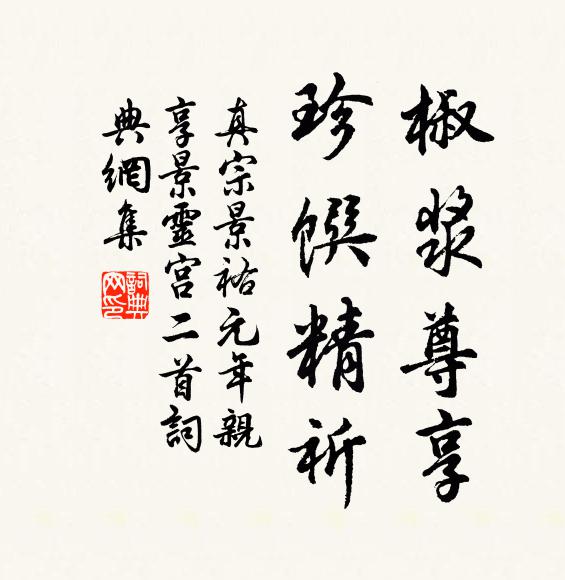 椒漿尊享
珍饌精祈
真宗景祐元年親
享景靈宫二首詞
典網集
詞典網印